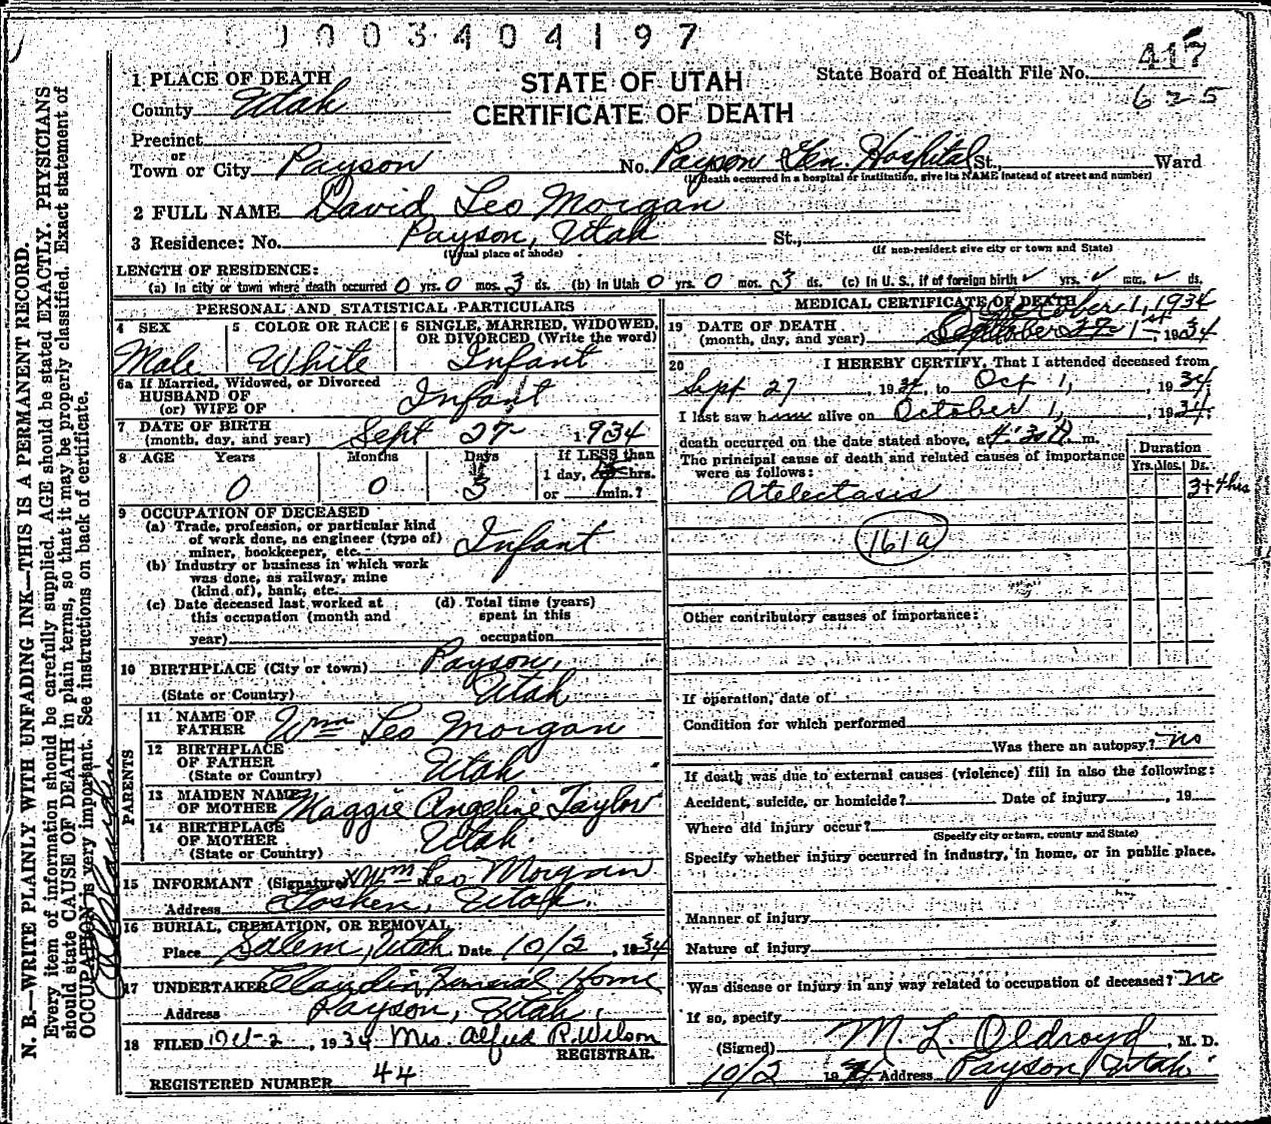 0003404197
STATE OF UTAH
CERTIFICATE OF DEATH
State Board of Health File No. 417
625
1 PLACE OF DEATH
County Utah
Precinct
or
Town or City Payson No. Payson Gen. Hospital St., Ward
(If death occurred in a hospital or institution, give its NAME instead of street and number)
2 FULL NAME David Leo Morgan
3 Residence: No. Payson, Utah St.,
(Usual place of abode) (If non-resident give city or town and State)
LENGTH OF RESIDENCE:
(a) In city or town where death occurred 0 yrs. 0 mos. 3 ds. (b) In Utah 0 yrs. 0 mos. 3 ds. (c) In U. S., if of foreign birth ✓ yrs. ✓ mos. ✓ ds.
PERSONAL AND STATISTICAL PARTICULARS
4 SEX
Male
5 COLOR OR RACE
White
6 SINGLE, MARRIED, WIDOWED, OR DIVORCED (Write the word)
Infant
6a If Married, Widowed, or Divorced
HUSBAND OF
(or) WIFE OF Infant
7 DATE OF BIRTH
(month, day, and year) Sept 27 1934
8 AGE Years Months Days If LESS than
1 day, hrs.
0 0 3 or min.?
9 OCCUPATION OF DECEASED
(a) Trade, profession, or particular kind
of work done, as engineer (type of)
miner, bookkeeper, etc. Infant
(b) Industry or business in which work
was done, as railway, mine
(kind of), bank, etc.
(c) Date deceased last worked at
this occupation (month and
year)
(d) Total time (years)
spent in this
occupation
10 BIRTHPLACE (City or town) Payson,
(State or Country) Utah
PARENTS
11 NAME OF
FATHER Wm Leo Morgan
12 BIRTHPLACE
OF FATHER
(State or Country) Utah
13 MAIDEN NAME
OF MOTHER Maggie Angeline Taylor
14 BIRTHPLACE
OF MOTHER
(State or Country) Utah
15 INFORMANT (Signature) x Wm Leo Morgan
Address Goshen, Utah.
16 BURIAL, CREMATION, OR REMOVAL
Place Salem, Utah Date 10/2, 1934
17 UNDERTAKER Funeral Home
Address Payson, Utah
18 FILED Oct-2, 1934 Mrs. Alfred R. Wilson
REGISTRAR.
REGISTERED NUMBER 44
MEDICAL CERTIFICATE OF DEATH
October 1, 1934
19 DATE OF DEATH
(month, day, and year) September 27 1st, 1934
20 I HEREBY CERTIFY, That I attended deceased from
Sept 27, 1934, to Oct 1, 1934.
I last saw h alive on October 1, 1934.
death occurred on the date stated above, at 4:30 A. m.
The principal cause of death and related causes of importance
were as follows:
Duration
Yrs. Mos. Ds.
Atelectasis 3+4hrs
161a
Other contributory causes of importance:
If operation, date of
Condition for which performed
Was there an autopsy? no
If death was due to external causes (violence) fill in also the following:
Accident, suicide, or homicide? Date of injury , 19
Where did injury occur?
(Specify city or town, county and State)
Specify whether injury occurred in industry, in home, or in public place.
Manner of injury
Nature of injury
Was disease or injury in any way related to occupation of deceased? no
If so, specify
(Signed) M. L. Oldroyd, M. D.
10/2 1934 Address Payson, Utah.
N. B.—WRITE PLAINLY WITH UNFADING INK—THIS IS A PERMANENT RECORD.
Every item of information should be carefully supplied. AGE should be stated EXACTLY. PHYSICIANS
should state CAUSE OF DEATH in plain terms, so that it may be properly classified. Exact statement of
OCCUPATION is very important. See instructions on back of certificate.